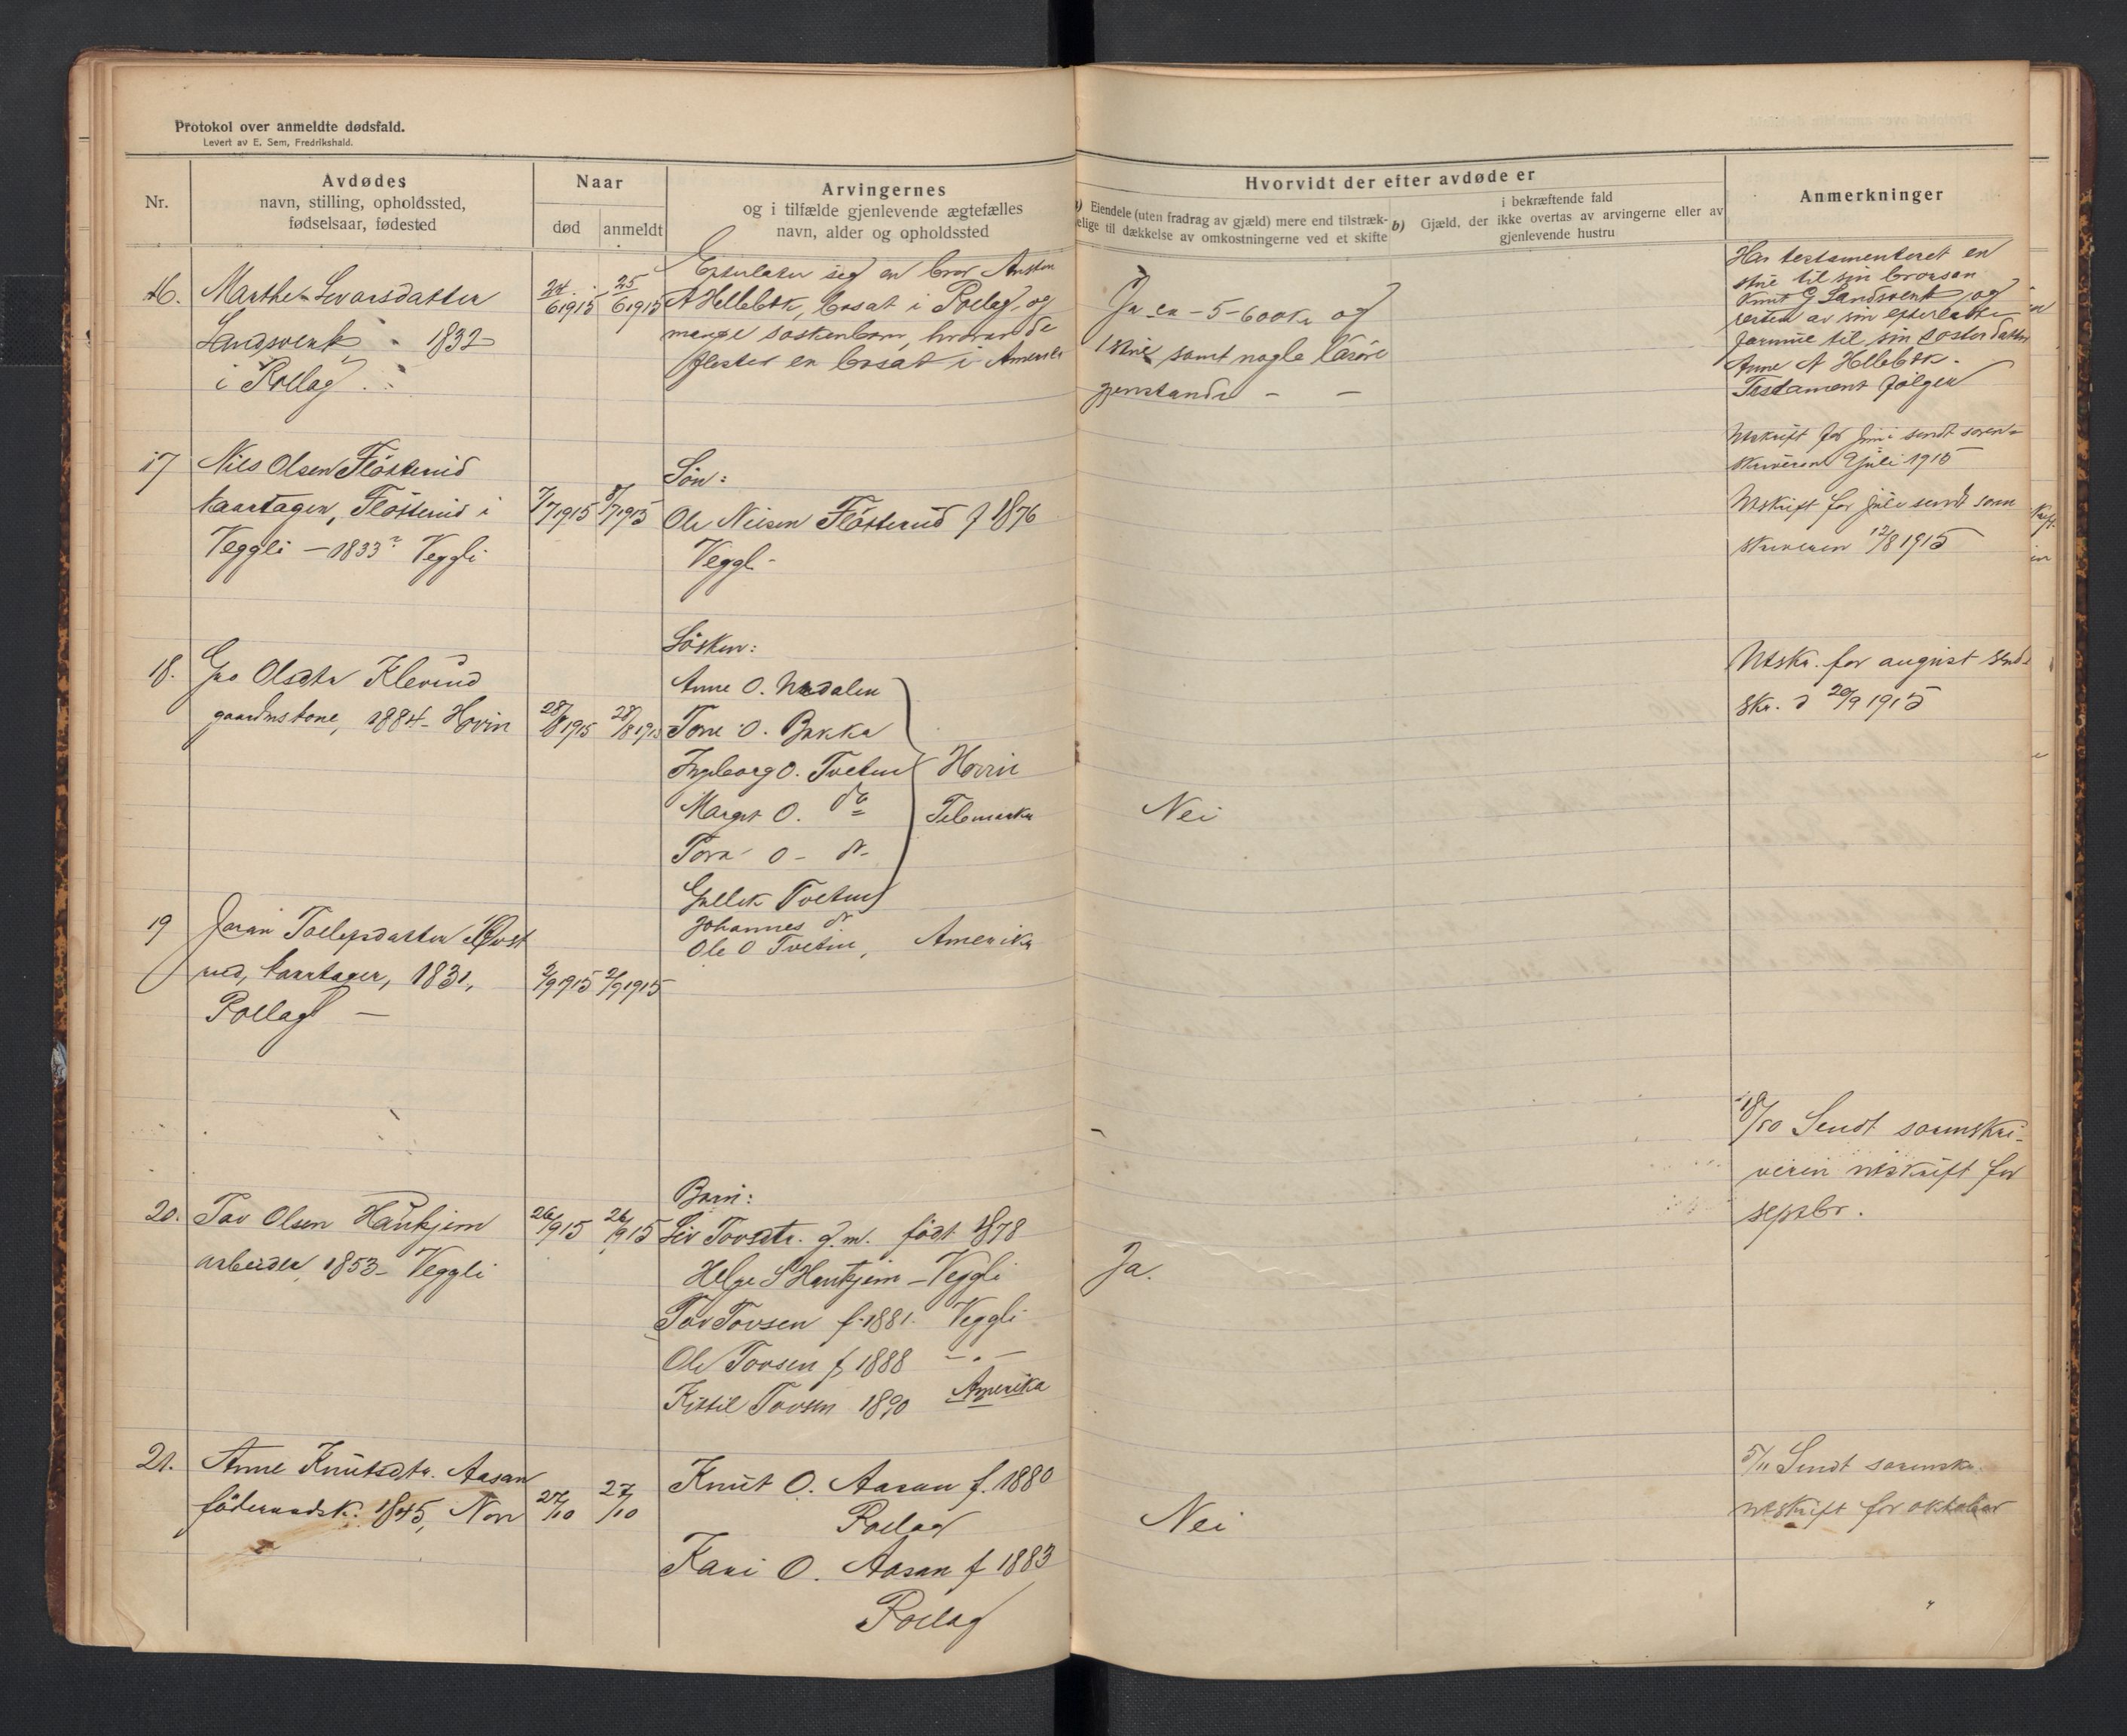 Protokol over anmeldte dødsfald.
Levert av E. Sem, Fredrikshald.
Nr.
Avdødes
navn, stilling, opholdssted,
fødselsaar, fødested
Naar
død
anmeldt
Arvingernes
og i tilfælde gjenlevende ægtefælles
navn, alder og opholdssted
Hvorvidt der efter avdøde er
a) Eiendele (uten fradrag av gjæld) mere end tilstræk-
kelige til dækkelse av omkostningerne ved et skifte
i bekræftende fald
b) Gjæld, der ikke overtas av arvingerne eller av
gjenlevende hustru
Anmerkninger
16.
Marthe Sevarsdatter
Landsverk 1832
i Rollag
24/6 1915
25/6 1915
Efterlater seg en bror
A Hellebek, bosat i Rollag, og
mange søskenbarn, hvorav de
flester er bosat i Amerika
Ja ca - 5-600 kr og
1 skrie samt nogle løsøre
gjenstande - -
Har testamenteret en
skrie til sin brorsøn
Knut G Landsverk, og
resten av sin efterlatte
formue til sin søsterdatter
Anne A Hellebek.
Testament følger
17
Nils Olsen Flösterud
kaartagen, Flösterud i
Veggli - 1833 Veggli
7/7 1915
8/7 1915
Sön:
Ole Nilsen Flösterud f 1876
Veggli
Utskrift for juni sendt soren-
skriveren juli 1915
Utskrift for juli sendt soren
skriveren 12/8 1915
18.
Gro Olsdtr Kleviud
gaardmskone, 1884 - Hovin
28/8 1915
28/8 1915
Søsken:
Anne O. Nedalen
Tone O. Bakka
Ingeborg O. Tvetun
Margit O. do
Tora O - do -
Gullek Tvetun
Johannes do
Ole O Tvetun, Amerika
Hovin
Telemarken
Nei
Utskr. for august sendt
skr. d 20/9 1915
19
Joran Tollefsdatter Øvst
rud, kaartager, 1831,
Rollag -
2/9 1915
2/9 1915
18/10 Sendt sorenskri-
veren utskrift for
septbr.
20.
Tov Olsen Haukjem
arbeider 1853 - Veggli
26/9 15
26/9 15
Barn:
Liv Tovsdtr. g.m. født 1878
Helge S Haukjem - Veggli
Tov Tovsen f. 1881. Veggli
Ole Tovsen f 1888 - " -
Kittil Tovsen 1890 Amerika
Ja.
21.
Anne Knutsdtr. Aasan
föderaadsk. 1845, Nore
27/10
27/10
Knut O. Aasan f. 1880
Rollag
Kari O. Aasan f 1883
Rollag
Nei
5/11 Sendt sorenskr.
utskrift for oktober